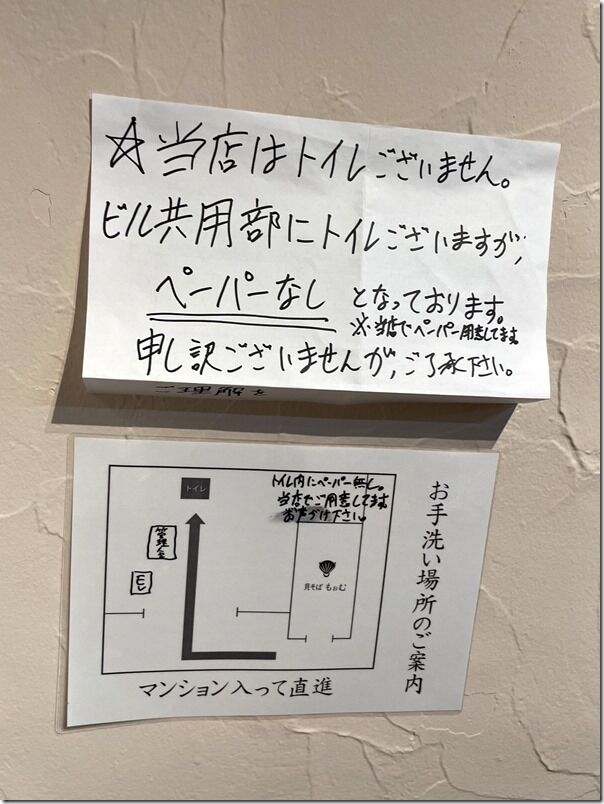 ☆当店はトイレございません。
ビル共用部にトイレございますが,
ペーパーなし となっております。
※当店でペーパー用意してます。
申し訳ございませんが,ご了承下さい。
ご理解を
お手洗い場所のご案内
トイレ
トイレ内にペーパー無し。
当店でご用意してます。
お声がけ下さい。
管理人室
EV
貝そば もぉむ
マンション入って直進